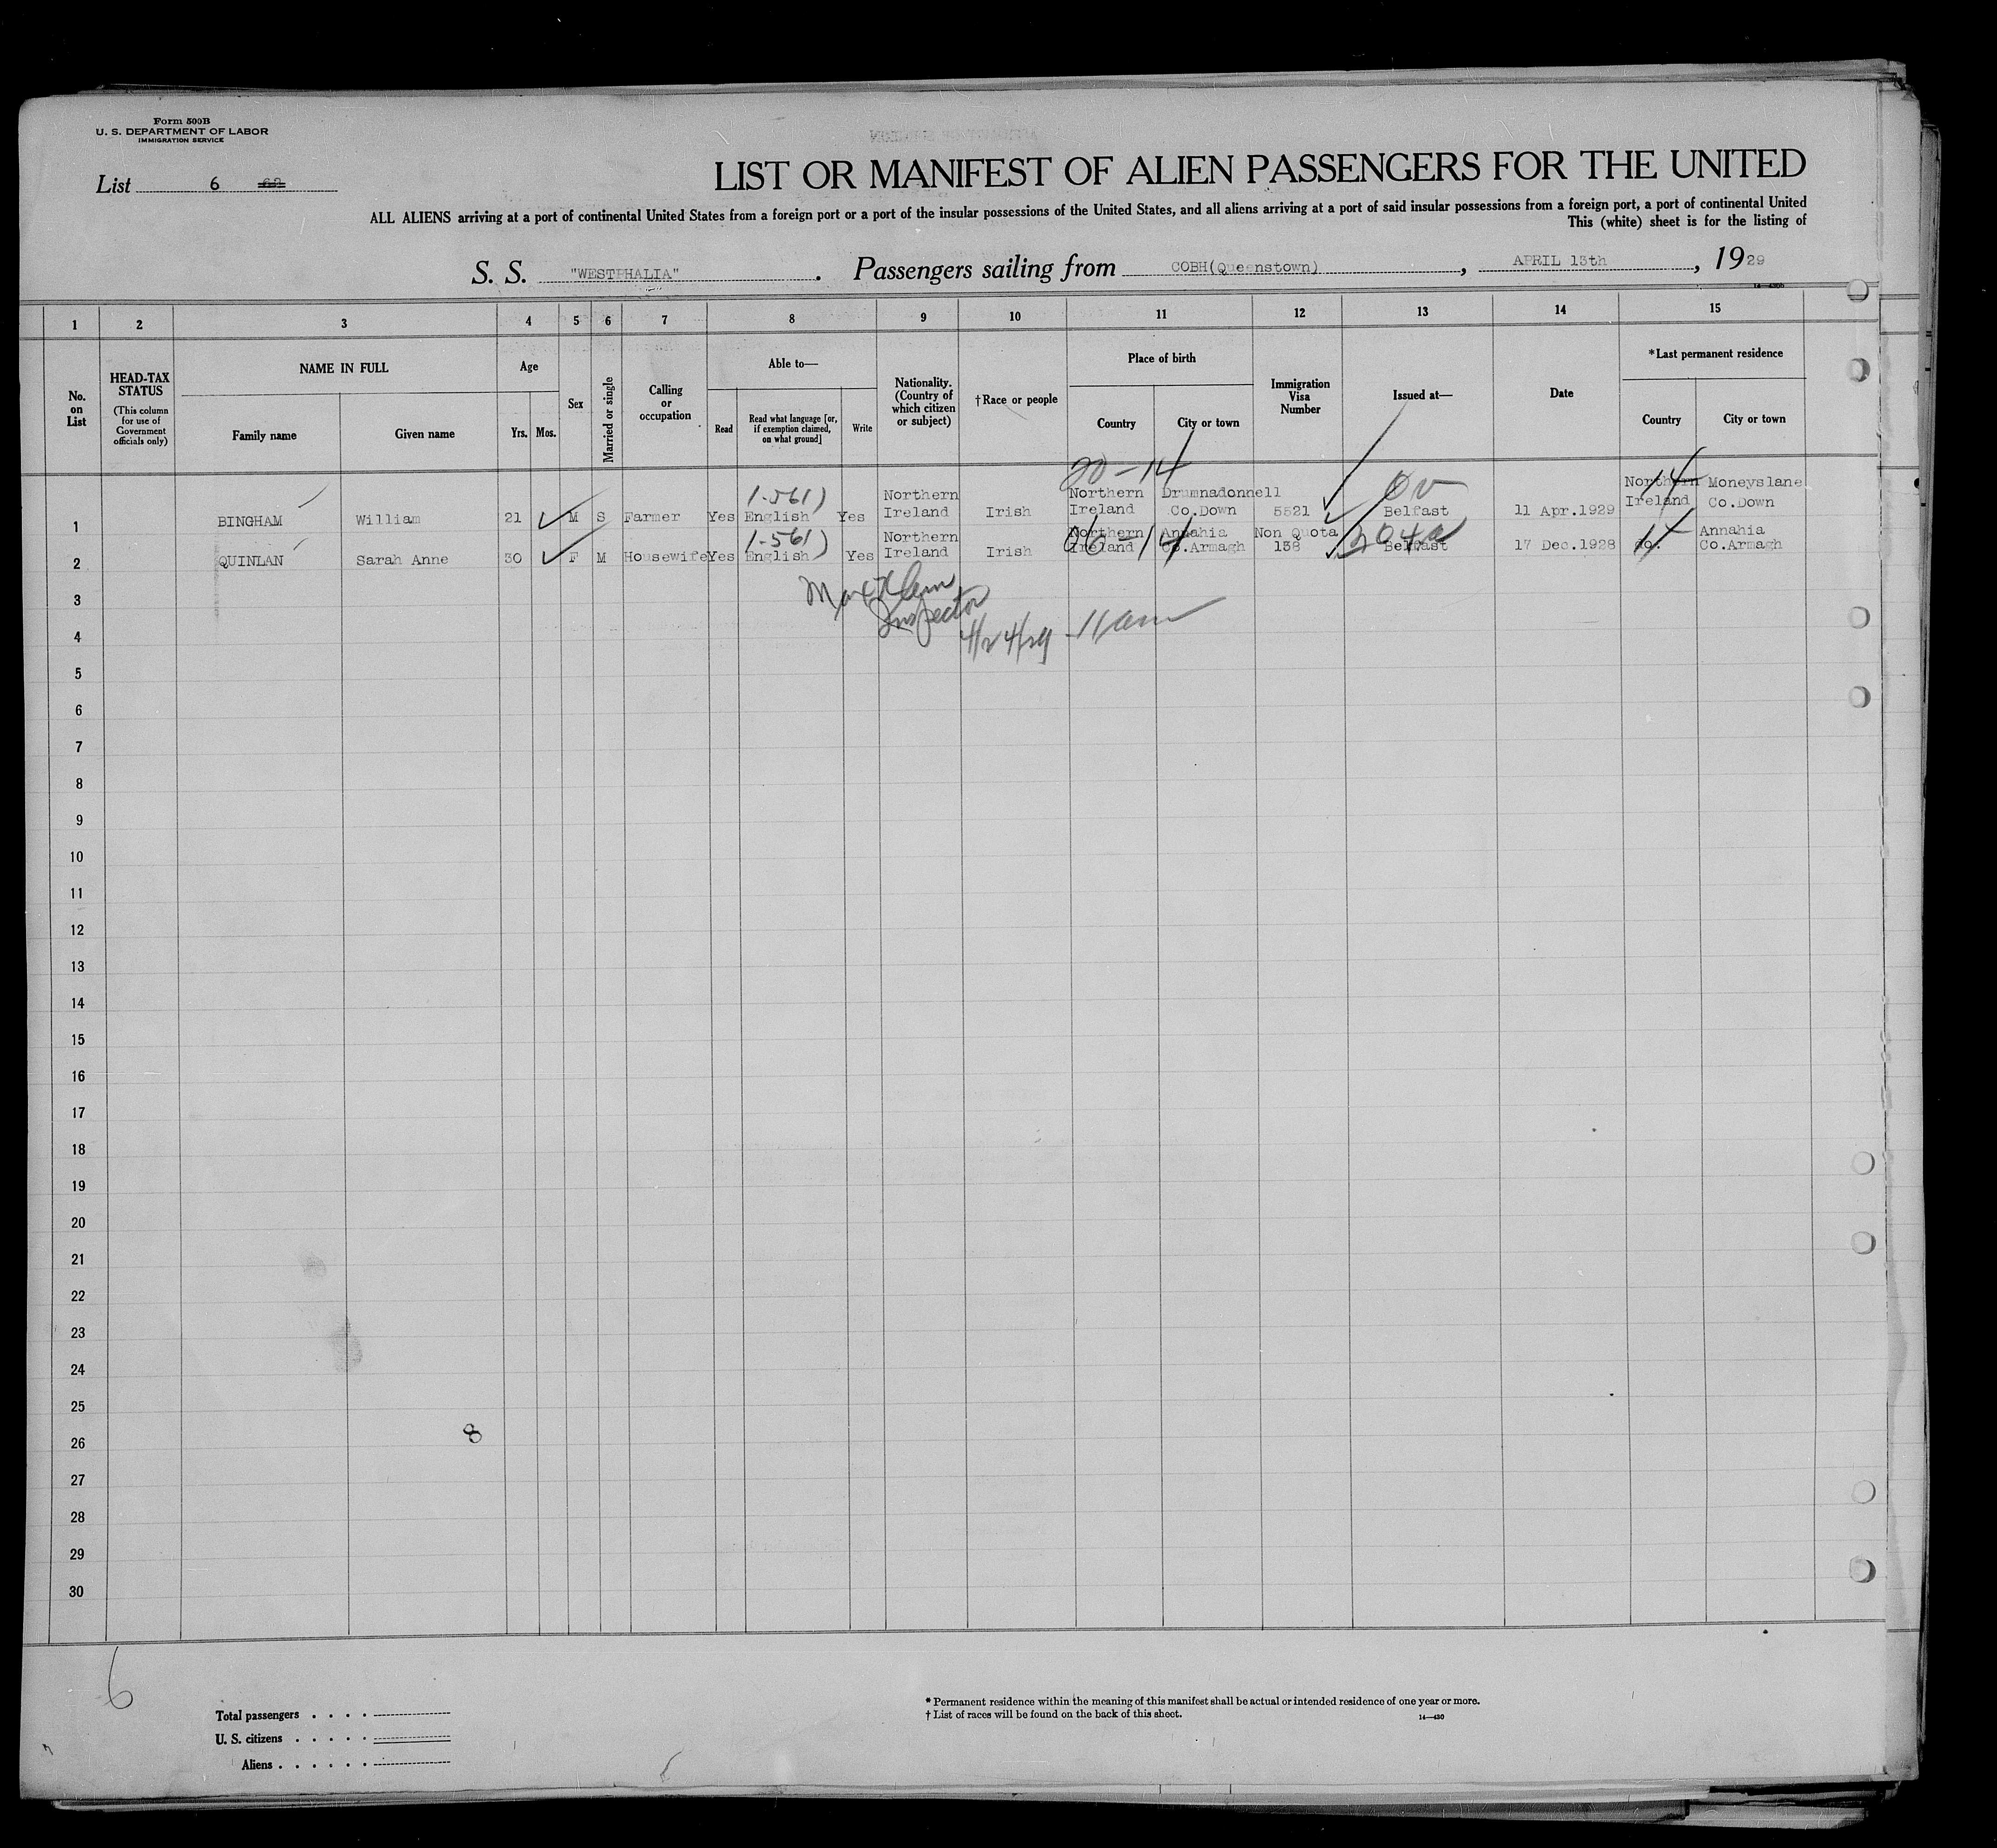 Form 500B
U. S. DEPARTMENT OF LABOR
IMMIGRATION SERVICE
List 6
LIST OR MANIFEST OF ALIEN PASSENGERS FOR THE UNITED
ALL ALIENS arriving at a port of continental United States from a foreign port or a port of the insular possessions of the United States, and all aliens arriving at a port of said insular possessions from a foreign port, a port of continental United
This (white) sheet is for the listing of
S. S. "WESTPHALIA". Passengers sailing from COBH(Queenstown), APRIL 13th, 1929
1 2 3 4 5 6 7 8 9 10 11 12 13 14 15
No. on List
HEAD-TAX STATUS
(This column for use of Government officials only)
NAME IN FULL
Family name Given name
Age
Yrs. Mos.
Sex
Married or single
Calling or occupation
Able to—
Read Read what language [or, if exemption claimed, on what ground] Write
Nationality. (Country of which citizen or subject)
†Race or people
Place of birth
Country City or town
Immigration Visa Number
Issued at—
Date
*Last permanent residence
Country City or town
20-14
1 BINGHAM William 21 M S Farmer Yes 1-561) English Yes Northern Ireland Irish Northern Ireland Drumnadonnell Co.Down 5521 Belfast 11 Apr.1929 Northern Ireland 14 Moneyslane Co.Down
2 QUINLAN Sarah Anne 30 F M Housewife Yes 1-561) English Yes Northern Ireland Irish Northern Ireland Annahia Co.Armagh Non Quota 138 Belfast 17 Dec.1928 do. 14 Annahia Co.Armagh
3
Inspector
4 4/24/29 - 11am
5
6
7
8
9
10
11
12
13
14
15
16
17
18
19
20
21
22
23
24
25
8
26
27
28
29
30
6
Total passengers . . . .
U. S. citizens . . . . .
Aliens . . . . . .
* Permanent residence within the meaning of this manifest shall be actual or intended residence of one year or more.
† List of races will be found on the back of this sheet.
14—430